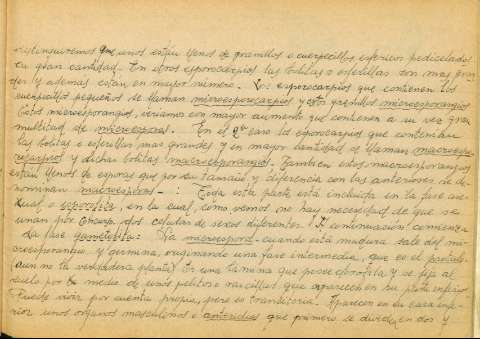 distinguiremos que unos están llenos de granillos o cuerpecillos esfericos pedicelados
en gran cantidad.- En otros esporocarpios las bolitas o esferillas son mas gran
des y además están en mayor número.- Los esporocarpios que contienen los
cuerpecillos pequeños se llaman microesporocarpios y estos granillos microesporangios
Estos microesporangios, veriamos con mayor aumento que contienen a su vez gran
multitud de microesporas.- En el 2º caso los esporocarpios que contenian
las bolitas o esferillas mas grandes y en mayor cantidad se llaman macroespo
rocarpios y dichas bolitas macroesporangios. Tambien estos macroesporangios
están llenos de esporas que por su tamaño y diferencia con las anteriores se de-
nominan macroesporas.- : Toda esta parte está incluida en la fase ase-
xual o esporofita, en la cual, como vemos no hay necesidad de que se
unan por dos celulas de sexos diferentes. A continuación comienza
La fase gametofita: La microespora cuando está madura sale del mi-
croesporangio y germina, originando una fase intermedia, que es el protalo
(aun no la verdadera planta). Es una lamina que posee clorofila y se fija al
suelo por medio de unos pelitos o raicillas que aparecen en su parte inferior
Puede vivir por cuenta propia, pero es transitoria. Aparecen en su cara infe-
rior unos organos masculinos o anteridios que primero se dividen en dos y